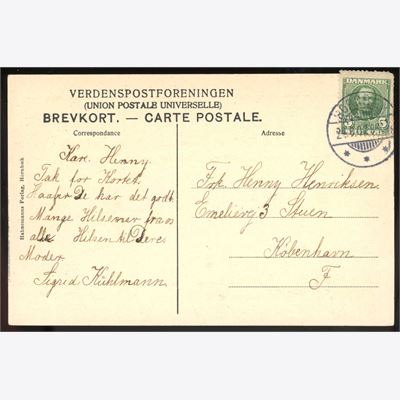 VERDENSPOSTFORENINGEN
(UNION POSTALE UNIVERSELLE)
BREVKORT. — CARTE POSTALE.
Correspondance
Adresse
DANMARK
5
Kære Henny.
Tak for Kortet.
Haaper De har det godt.
Mange Hilsener fra os
alle Hilsen til Deres
Moder.
Sigrid Kühlmann.
Frk. Henny Henriksen.
Emelievej 3 Stuen
København
F
Forlag, Hornbæk